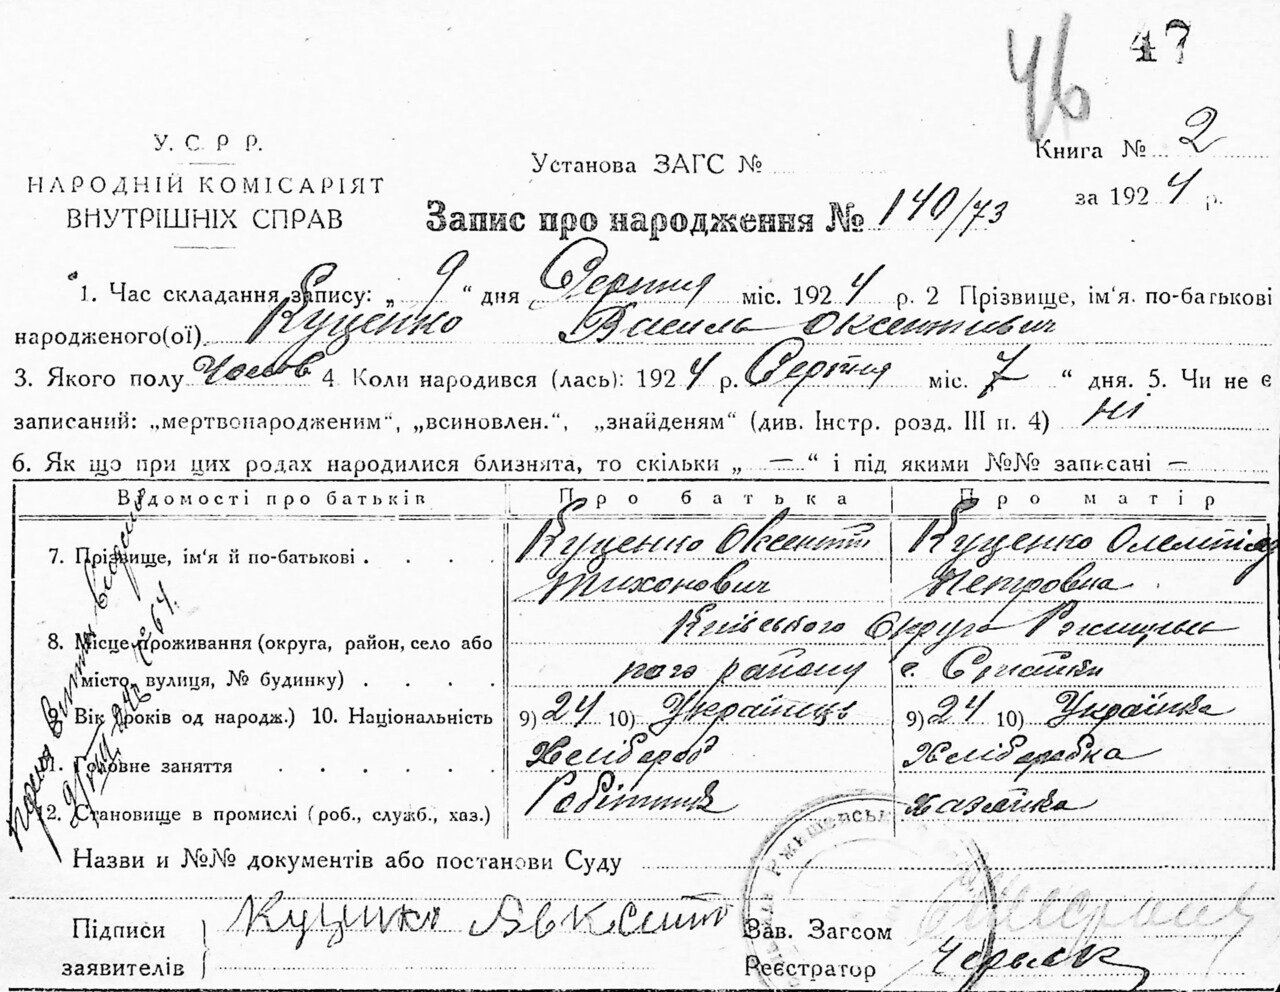 46 47
У. С. Р Р.
НАРОДНІЙ КОМІСАРІЯТ
ВНУТРІШНІХ СПРАВ
Установа ЗАГС №
Книга № 2
за 1924 р.
Запис про народження № 140/73
1. Час складання запису: „ 9 “ дня Серпня міс. 1924 р. 2 Прізвище, ім'я. по-батькові
народженого(ої) Куценко Василь Оксентиевич
3. Якого полу Чолов 4 Коли народився (лась): 1924 р. Серпня міс. 7 “ дня. 5. Чи не є
записаний: „мертвонародженим“, „всиновлен.“, „знайденям“ (див. Інстр. розд. III п. 4) ні
6. Як що при цих родах народилися близнята, то скільки „ — “ і під якими №№ записані —
Відомості про батьків Про батька Про матір
7. Прізвище, ім'я й по-батькові . . . . Куценко Оксентій Куценко Олемпіяда
Тихонович Петровна
8. Місце проживання (округа, район, село або Київського Округа Ржищівсь
місто, вулиця, № будинку) . . . . кого району с.
9. Вік (років од народж.) 10. Національність 9) 24 10) Українець 9) 24 10) Українка
11. Головне заняття . . . . . Хлібороб Хліборобка
12. Становище в промислі (роб., служб., хаз.) Робітник Хазяйка
Назви и №№ документів або постанови Суду
Підписи
заявителів
Куценко Явксентій
Зав. Загсом
Реєстратор